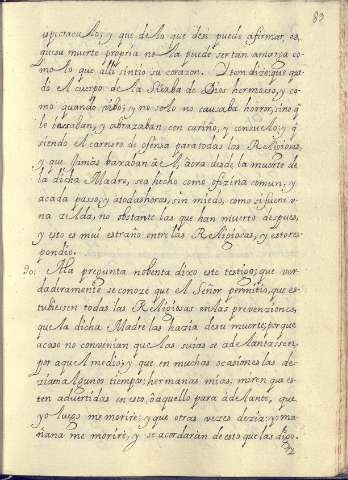 83
espectaculo; y que de lo que den puedo afirmar, es,
que su muerte propria no la puede ser tan amarga co-
mo lo que alli sintio su corazon. Ytem dize: que que-
dó el cuerpo de la Sierba de Dios hermoso, y co-
mo quando vibo; y no solo no causaba horror, sino q
le besaban, y abrazaban con cariño, y consuelo; y q
siendo el carnero de ofensa para todas las Religiosas,
y que jamas baxaban à el, aora desde la muerte de
la dicha Madre, se a hecho como ofizina comun, y
a cada passo, y a todas horas, sin miedo, como si fuera v-
na zelda, no obstante las que han muerto despues,
y esto es mui estraño entre las Religiosas, y esto res-
pondio.
90. A la pregunta nobenta dixo este testigo; que ver-
daderamente se conoze que el Señor permitio, que es-
tubiessen todas las Religiosas en las prevenciones,
que la dicha Madre las hazia de su muerte, porque
acaso no convenian que las suias se adelantassen,
por aquel medio; y que en muchas ocasiones las de-
zia: algunos tiempos: hermanas mias, miren que es-
ten advertidas en esto, ò aquello para adelante, que
yo luego me moriré; y que otras vezes dezia: yo ma-
ñana me moriré, y se acordaran de esto que las digo.